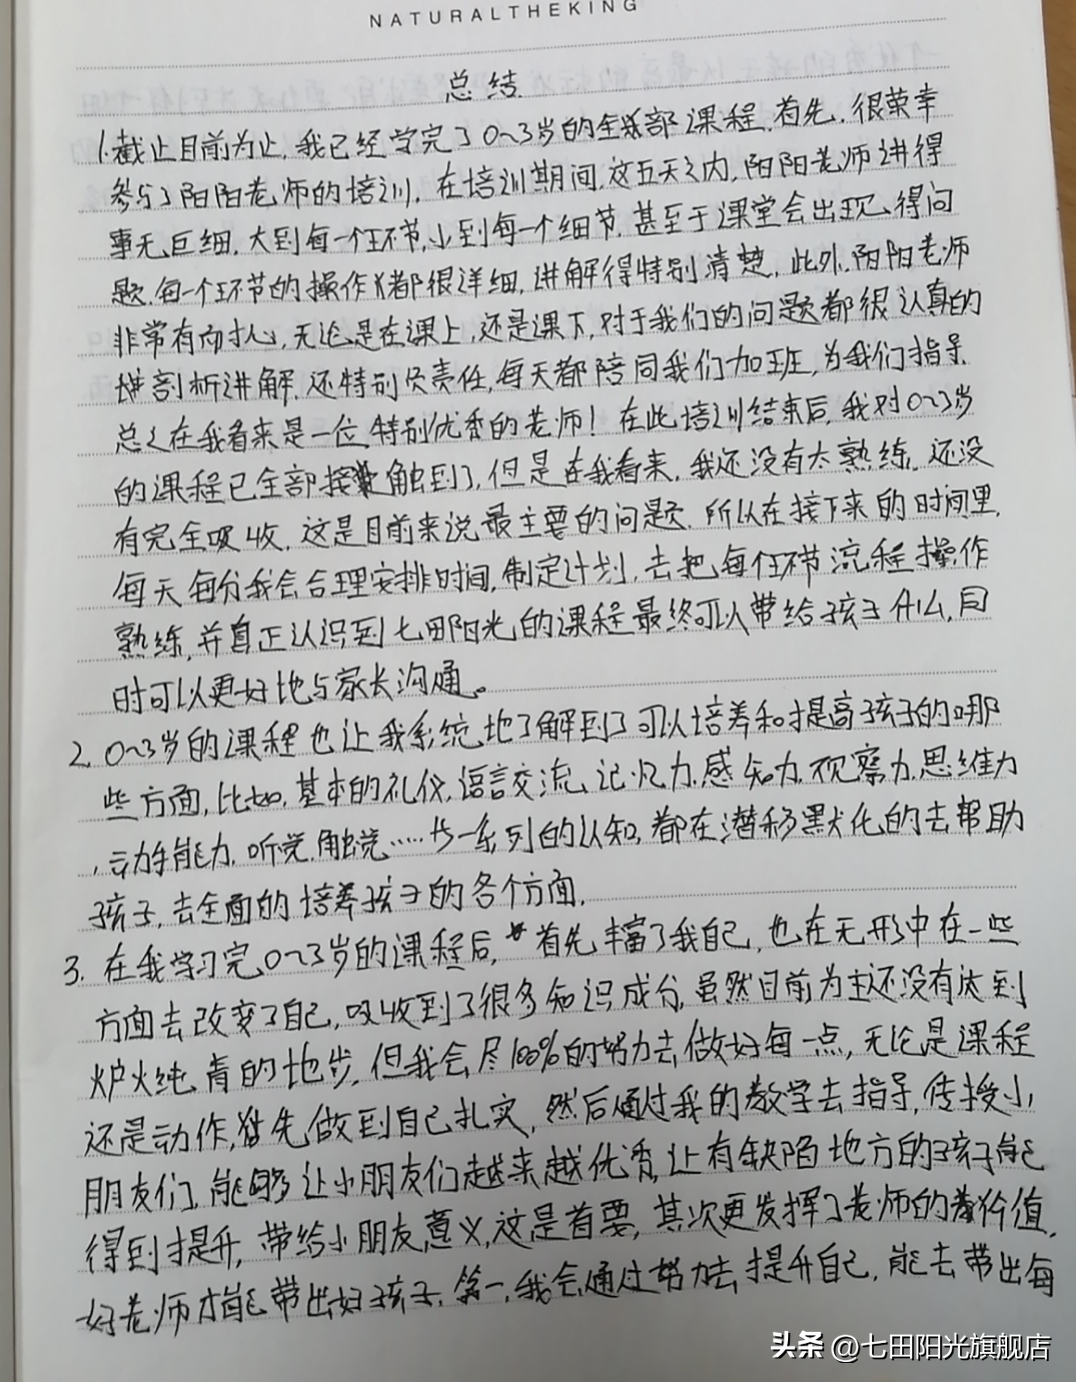 NATURALTHEKING
总结
1.截止目前为止,我已经学完了0~3岁的全部课程.首先.很荣幸
参与了阳阳老师的培训.在培训期间,这五天之内,阳阳老师讲得
事无巨细.大到每一个环节,小到每一个细节.甚至于课堂会出现得问
题.每一个环节的操作都很详细,讲解得特别清楚.此外.阳阳老师
非常有耐心,无论是在课上,还是课下,对于我们的问题都很认真的
剖析讲解.还特别负责任,每天都陪同我们加班,为我们指导.
总之在我看来是一位特别优秀的老师!在此培训结束后,我对0~3岁
的课程已全部接触到了,但是在我看来,我还没有太熟练,还没
有完全吸收.这是目前来说最主要的问题.所以在接下来的时间里,
每天每分我会合理安排时间,制定计划,去把每个环节流程操作
熟练,并真正认识到七田阳光的课程最终可以带给孩子什么,同
时可以更好地与家长沟通。
2.0~3岁的课程也让我系统地了解到了可以培养和提高孩子的哪
些方面,比如,基本的礼仪.语言交流、记忆力.感知力.观察力.思维力
,动手能力.听觉.触觉……等一系列的认知,都在潜移默化的去帮助
孩子,去全面的培养孩子的各个方面.
3.在我学习完0~3岁的课程后,首先丰富了我自己,也在无形中在一些
方面去改变了自己,吸收到了很多知识成分,虽然目前为止还没有达到
炉火纯青的地步,但我会尽100%的努力去做好每一点,无论是课程
还是动作,首先做到自己扎实,然后通过我的教学去指导,传授小
朋友们,能够让小朋友们越来越优秀,让有缺陷地方的孩子能
得到提升,带给小朋友意义,这是首要,其次更发挥了老师的价值,
好老师才能带出好孩子.第一,我会通过努力去提升自己,能去带出每
头条 @七田阳光旗舰店